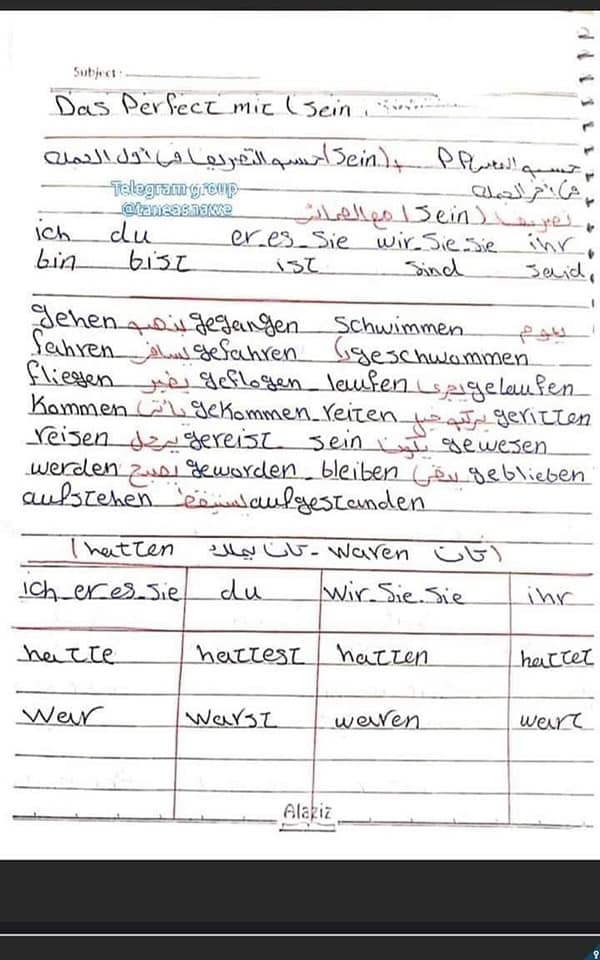 Subject:
Das Perfect mit (sein
(sein) + PP
Telegram group
@taneasnawe
تصريف (sein) مع الضمائر
ich du er-es-sie wir-Sie-sie ihr
bin bist ist sind seid
gehen يذهب gegangen schwimmen يعوم
fahren يسافر gefahren geschwommen
fliegen يطير geflogen - laufen يجرى gelaufen
kommen يأتى gekommen - reiten geritten
reisen يرحل gereist sein يكون gewesen
werden يصبح geworden - bleiben يبقى geblieben
aufstehen يستيقظ aufgestanden
(hatten كان يملك - waren كان)
ich-er-es-sie du wir-Sie-sie ihr
hatte hattest hatten hattet
war warst waren wart
Alaziz